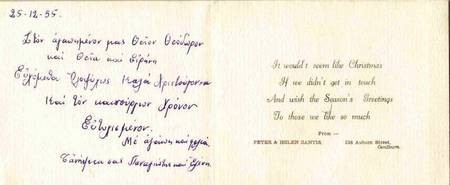 25-12-55.
Στον αγαπημένον μας Θείον Θεόδωρον
και Θεία και Ειρήνη
Ευχόμεθα Ολοψύχως Καλά Χριστούγεννα
Και τον καινούργιον Χρόνον
Ευτυχισμένον.
Με αγάπη και φιλιά
σας Παναγιώτης και Ελένη.
It wouldn't seem like Christmas
If we didn't get in touch
And wish the Season's Greetings
To those we like so much
From —
PETER & HELEN ZANTIS, 156 Auburn Street,
Goulburn.